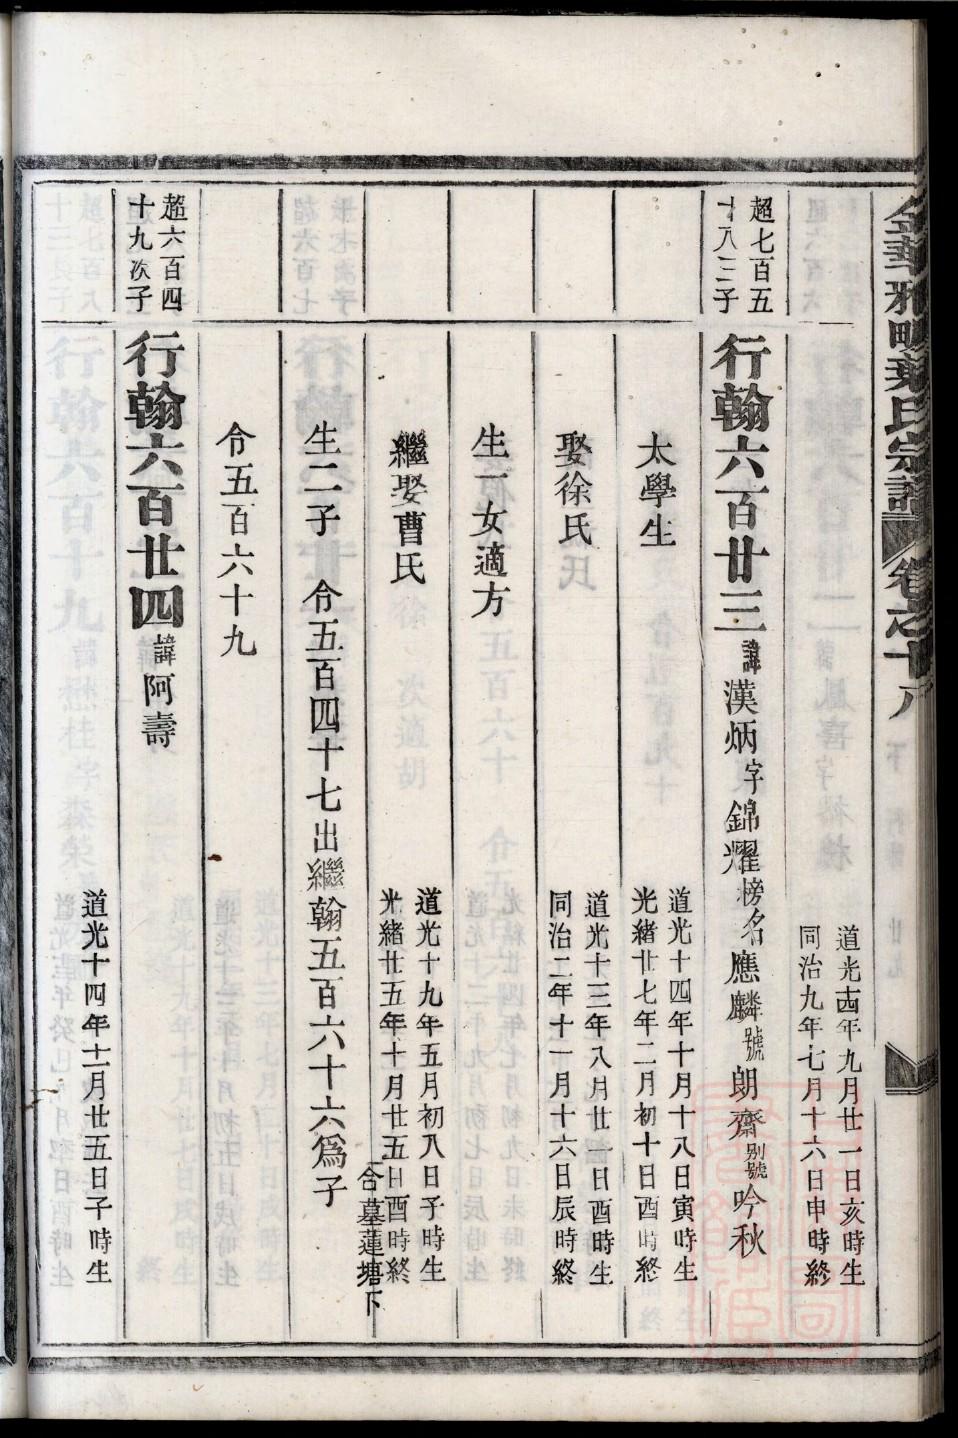 金華雅畈葉氏宗譜 卷之十八
道光十四年九月廿一日亥時生
同治九年七月十六日申時終
超七百五
十八三子
行翰六百廿三 諱漢炳字錦耀榜名應麟號朗齋別號吟秋
太學生
道光十四年十月十八日寅時生
光緒廿七年二月初十日酉時終
娶徐氏
道光十三年八月廿一日酉時生
同治二年十一月十六日辰時終
生一女適方
繼娶曹氏
道光十九年五月初八日子時生
光緒廿五年十月廿五日酉時終
合墓蓮塘下
生二子 令五百四十七出繼翰五百六十六為子
令五百六十九
超六百四
十九次子
行翰六百廿四 諱阿壽
道光十四年十一月廿五日子時生